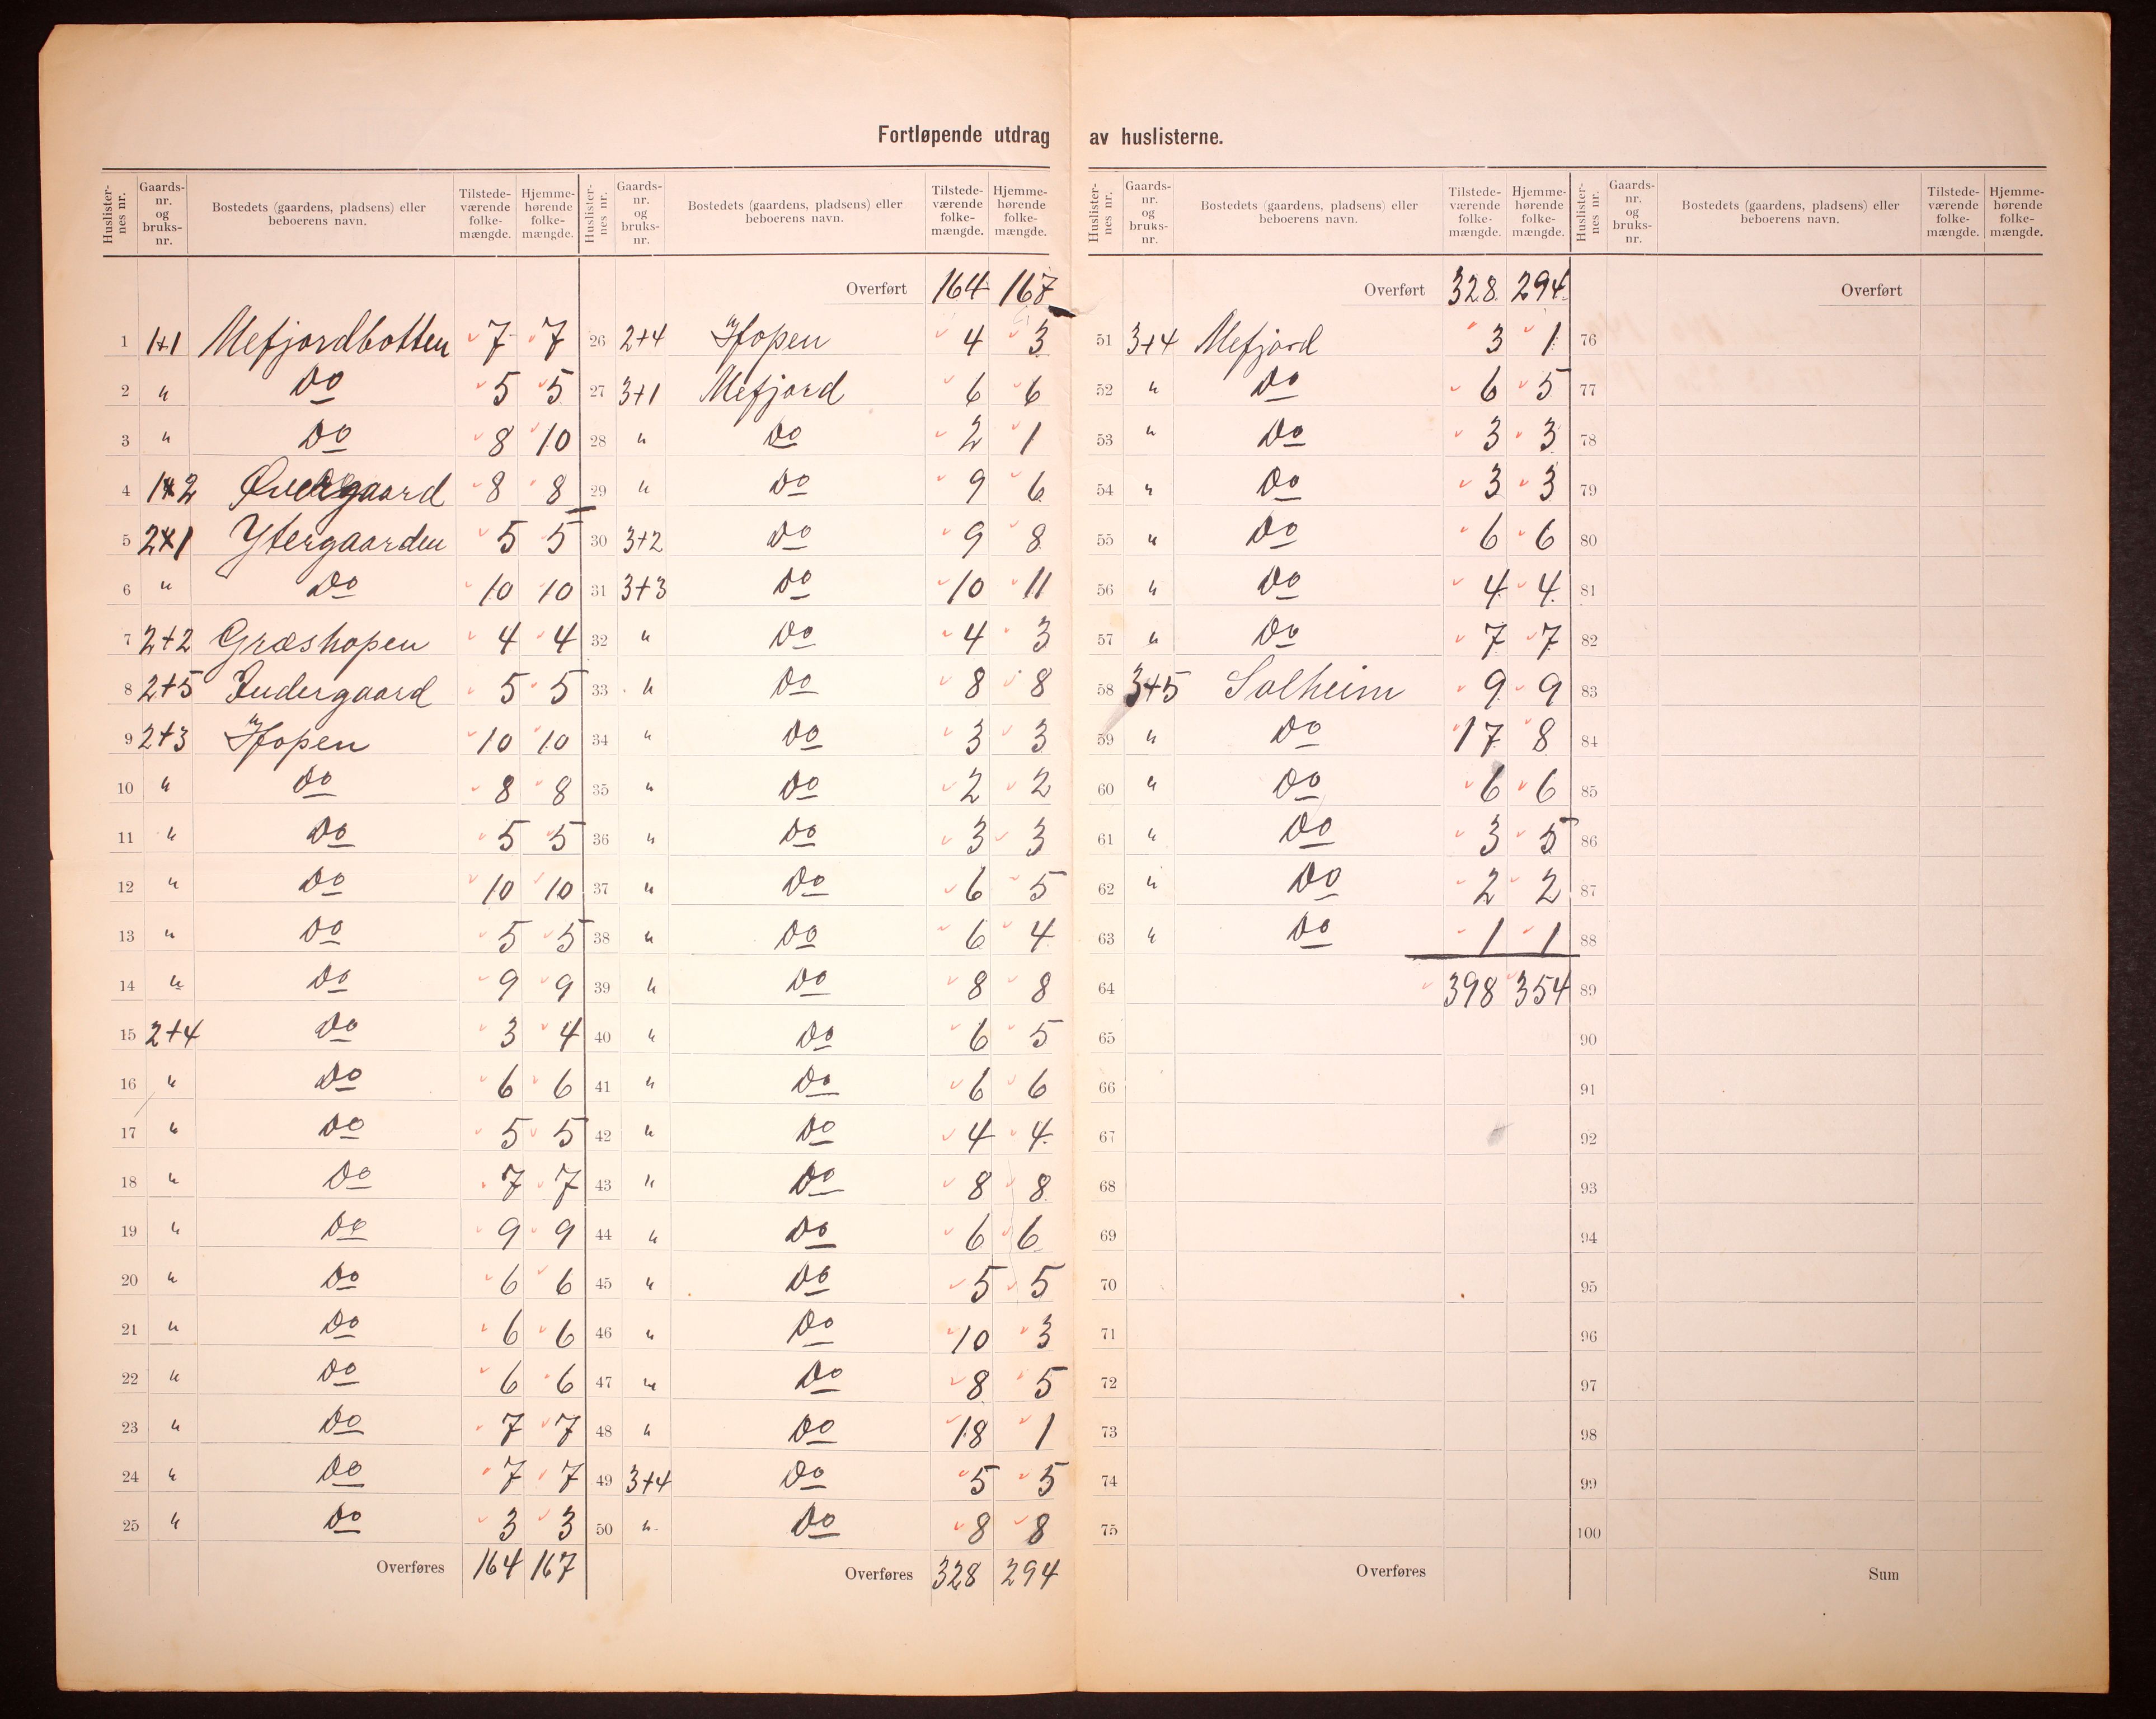 Fortløpende utdrag av huslisterne.
Huslisternes nr. Gaards-nr. og bruks-nr. Bostedets (gaardens, pladsens) eller beboerens navn. Tilstede-værende folke-mængde. Hjemme-hørende folke-mængde.
1 1+1 Mefjordbotten 7 7
2 " Do 5 5
3 " Do 8 10
4 1+2 Øvergaard 8 8
5 2+1 Ytergaarden 5 5
6 " Do 10 10
7 2+2 Græshopen 4 4
8 2+5 Indergaard 5 5
9 2+3 Hopen 10 10
10 " Do 8 8
11 " Do 5 5
12 " Do 10 10
13 " Do 5 5
14 " Do 9 9
15 2+4 Do 3 4
16 " Do 6 6
17 " Do 5 5
18 " Do 7 7
19 " Do 9 9
20 " Do 6 6
21 " Do 6 6
22 " Do 6 6
23 " Do 7 7
24 " Do 7 7
25 " Do 3 3
Overføres 164 167
Huslisternes nr. Gaards-nr. og bruks-nr. Bostedets (gaardens, pladsens) eller beboerens navn. Tilstede-værende folke-mængde. Hjemme-hørende folke-mængde.
Overført 164 167
26 2+4 Hopen 4 3
27 3+1 Mefjord 6 6
28 " Do 2 1
29 " Do 9 6
30 3+2 Do 9 8
31 3+3 Do 10 11
32 " Do 4 3
33 " Do 8 8
34 " Do 3 3
35 " Do 2 2
36 " Do 3 3
37 " Do 6 5
38 " Do 6 4
39 " Do 8 8
40 " Do 6 5
41 " Do 6 6
42 " Do 4 4
43 " Do 8 8
44 " Do 6 6
45 " Do 5 5
46 " Do 10 3
47 " Do 8 5
48 " Do 18 1
49 3+4 Do 5 5
50 " Do 8 8
Overføres 328 294
Huslisternes nr. Gaards-nr. og bruks-nr. Bostedets (gaardens, pladsens) eller beboerens navn. Tilstede-værende folke-mængde. Hjemme-hørende folke-mængde.
Overført 328 294
51 3+4 Mefjord 3 1
52 " Do 6 5
53 " Do 3 3
54 " Do 3 3
55 " Do 6 6
56 " Do 4 4
57 " Do 7 7
58 3+5 Solheim 9 9
59 " Do 17 8
60 " Do 6 6
61 " Do 3 5
62 " Do 2 2
63 " Do 1 1
64 398 354
65
66
67
68
69
70
71
72
73
74
75
Overføres
Huslisternes nr. Gaards-nr. og bruks-nr. Bostedets (gaardens, pladsens) eller beboerens navn. Tilstede-værende folke-mængde. Hjemme-hørende folke-mængde.
Overført
76
77
78
79
80
81
82
83
84
85
86
87
88
89
90
91
92
93
94
95
96
97
98
99
100
Sum